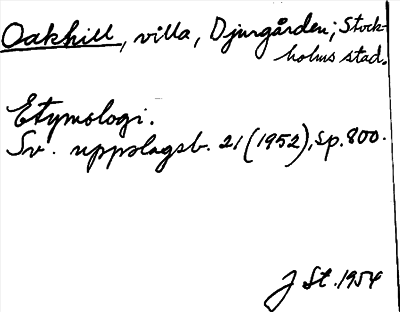 Oakhill, villa, Djurgården; Stock-
holms stad.
Etymologi.
Sv. uppslagsb. 21 (1952), sp. 800.
J St. 1954